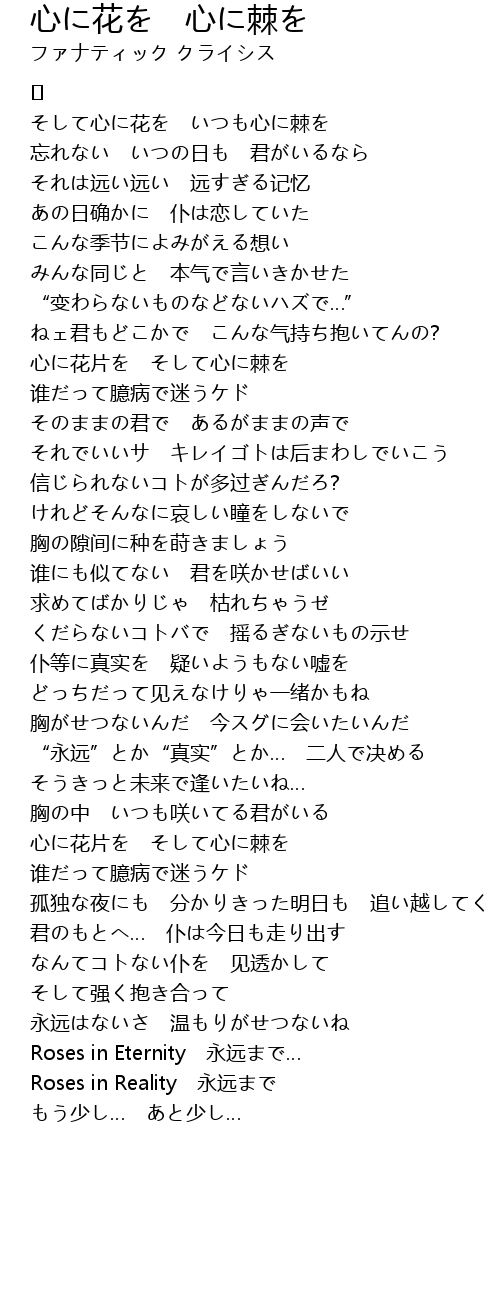 心に花を　心に棘を
ファナティック クライシス
そして心に花を　いつも心に棘を
忘れない　いつの日も　君がいるなら
それは远い远い　远すぎる记忆
あの日确かに　仆は恋していた
こんな季节によみがえる想い
みんな同じと　本气で言いきかせた
“变わらないものなどないハズで...”
ねェ君もどこかで　こんな气持ち抱いてんの?
心に花片を　そして心に棘を
谁だって臆病で迷うケド
そのままの君で　あるがままの声で
それでいいサ　キレイゴトは后まわしでいこう
信じられないコトが多过ぎんだろ?
けれどそんなに哀しい瞳をしないで
胸の隙间に种を莳きましょう
谁にも似てない　君を咲かせばいい
求めてばかりじゃ　枯れちゃうゼ
くだらないコトバで　摇るぎないもの示せ
仆等に真实を　疑いようもない嘘を
どっちだって见えなけりゃ一绪かもね
胸がせつないんだ　今スグに会いたいんだ
“永远”とか“真实”とか...　二人で决める
そうきっと未来で逢いたいね...
胸の中　いつも咲いてる君がいる
心に花片を　そして心に棘を
谁だって臆病で迷うケド
孤独な夜にも　分かりきった明日も　追い越してく
君のもとへ...　仆は今日も走り出す
なんてコトない仆を　见透かして
そして强く抱き合って
永远はないさ　温もりがせつないね
Roses in Eternity　永远まで...
Roses in Reality　永远まで
もう少し...　あと少し...